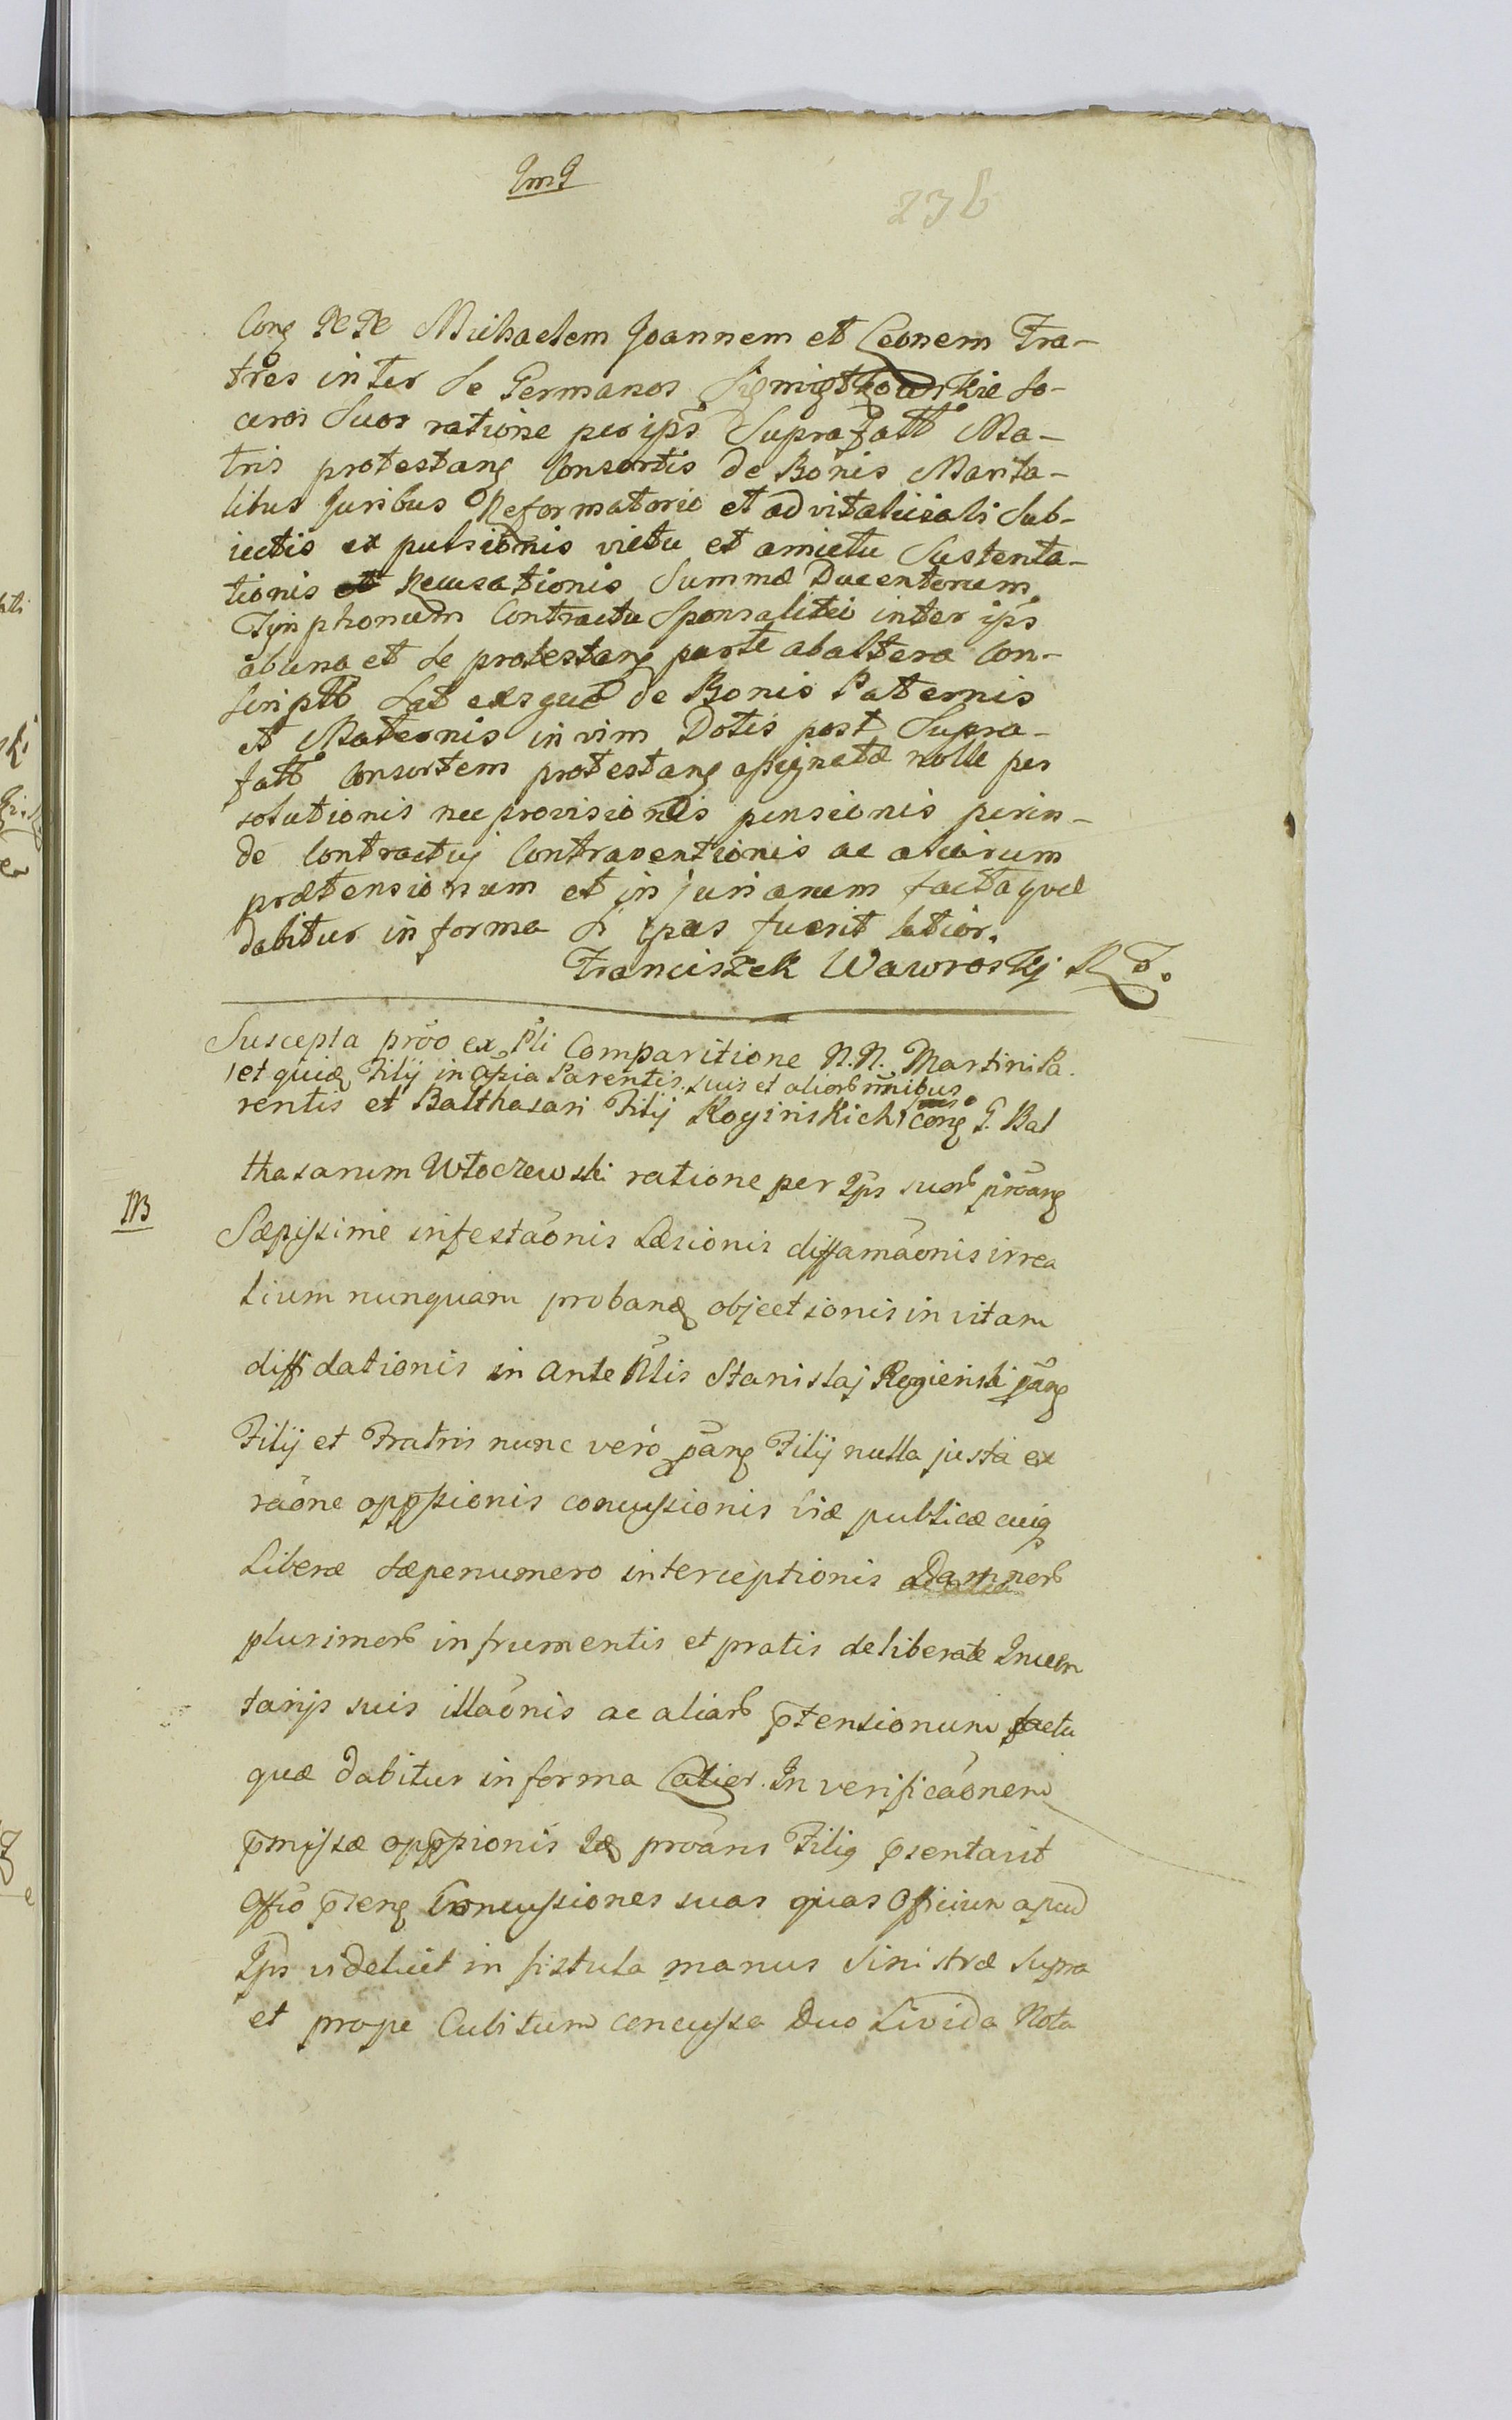 JmJ
236
Cong PP Michaelem Joannem et Leonem Fra-
tres inter se Germanos So-
ceros Suos ratione per ips Suprafatt Ma-
tris protestang Consortis de Bonis Marita-
libus Juribus Reformatorio et advitalitiali Sub-
iectis expulsionis victu et amictu Sustenta-
tionis et Recusationis Summæ Ducentorum
Tynphonum Contractu Sponsalitei inter ips
ab una et se protestang parte ab altera Con-
script de Bonis Paternis
et Maternis in vim Dotis post Supra-
fatt Consortem protestang assignatæ nolle per
solutionis nec provisionis pensionis perin-
de Contractuj Contraventionis ac aliarum
prætensionum et injuriarum facta quæ
dabitur in forma Si opus fuerit latior.
Franciszek Wawroskj
Suscepta prõo ex Pli Comparitione N.N. Martini Pa.
et quidæ Filij in Asia Parentis suis et aliorb nõnibus
rentis et Balthasari Filij Roginskich cong G. Bal
thasarum Wtoczewski ratione per Ips suorb prõang
NB
Sæpissime infestãonis Læsionis diffamãonis irrea
lium nunquam probandæ objectionis in vitam
diffidationis in ante Nlis Stanislaj Rogienski pãng
Filij et Fratris nunc vero pãng Filij nulla justa ex
rãone oppssionis concussionis viæ publicæ cuiq
Liberæ sæpenumero interceptionis Damnorb
plurimorb in frumentis et pratis deliberate Inven
tarijs suis illãonis ac aliarb ptensionum facta
quæ dabitur in forma Latior. In verificãonem
pmissæ oppssionis Idæ proãns Filig psentavit
Offio pseng Concussiones suas quas Officium apud
Ips videlicet in fistula manus Sinistræ Supra
et prope Cubitum concussa Duo Livida Nota